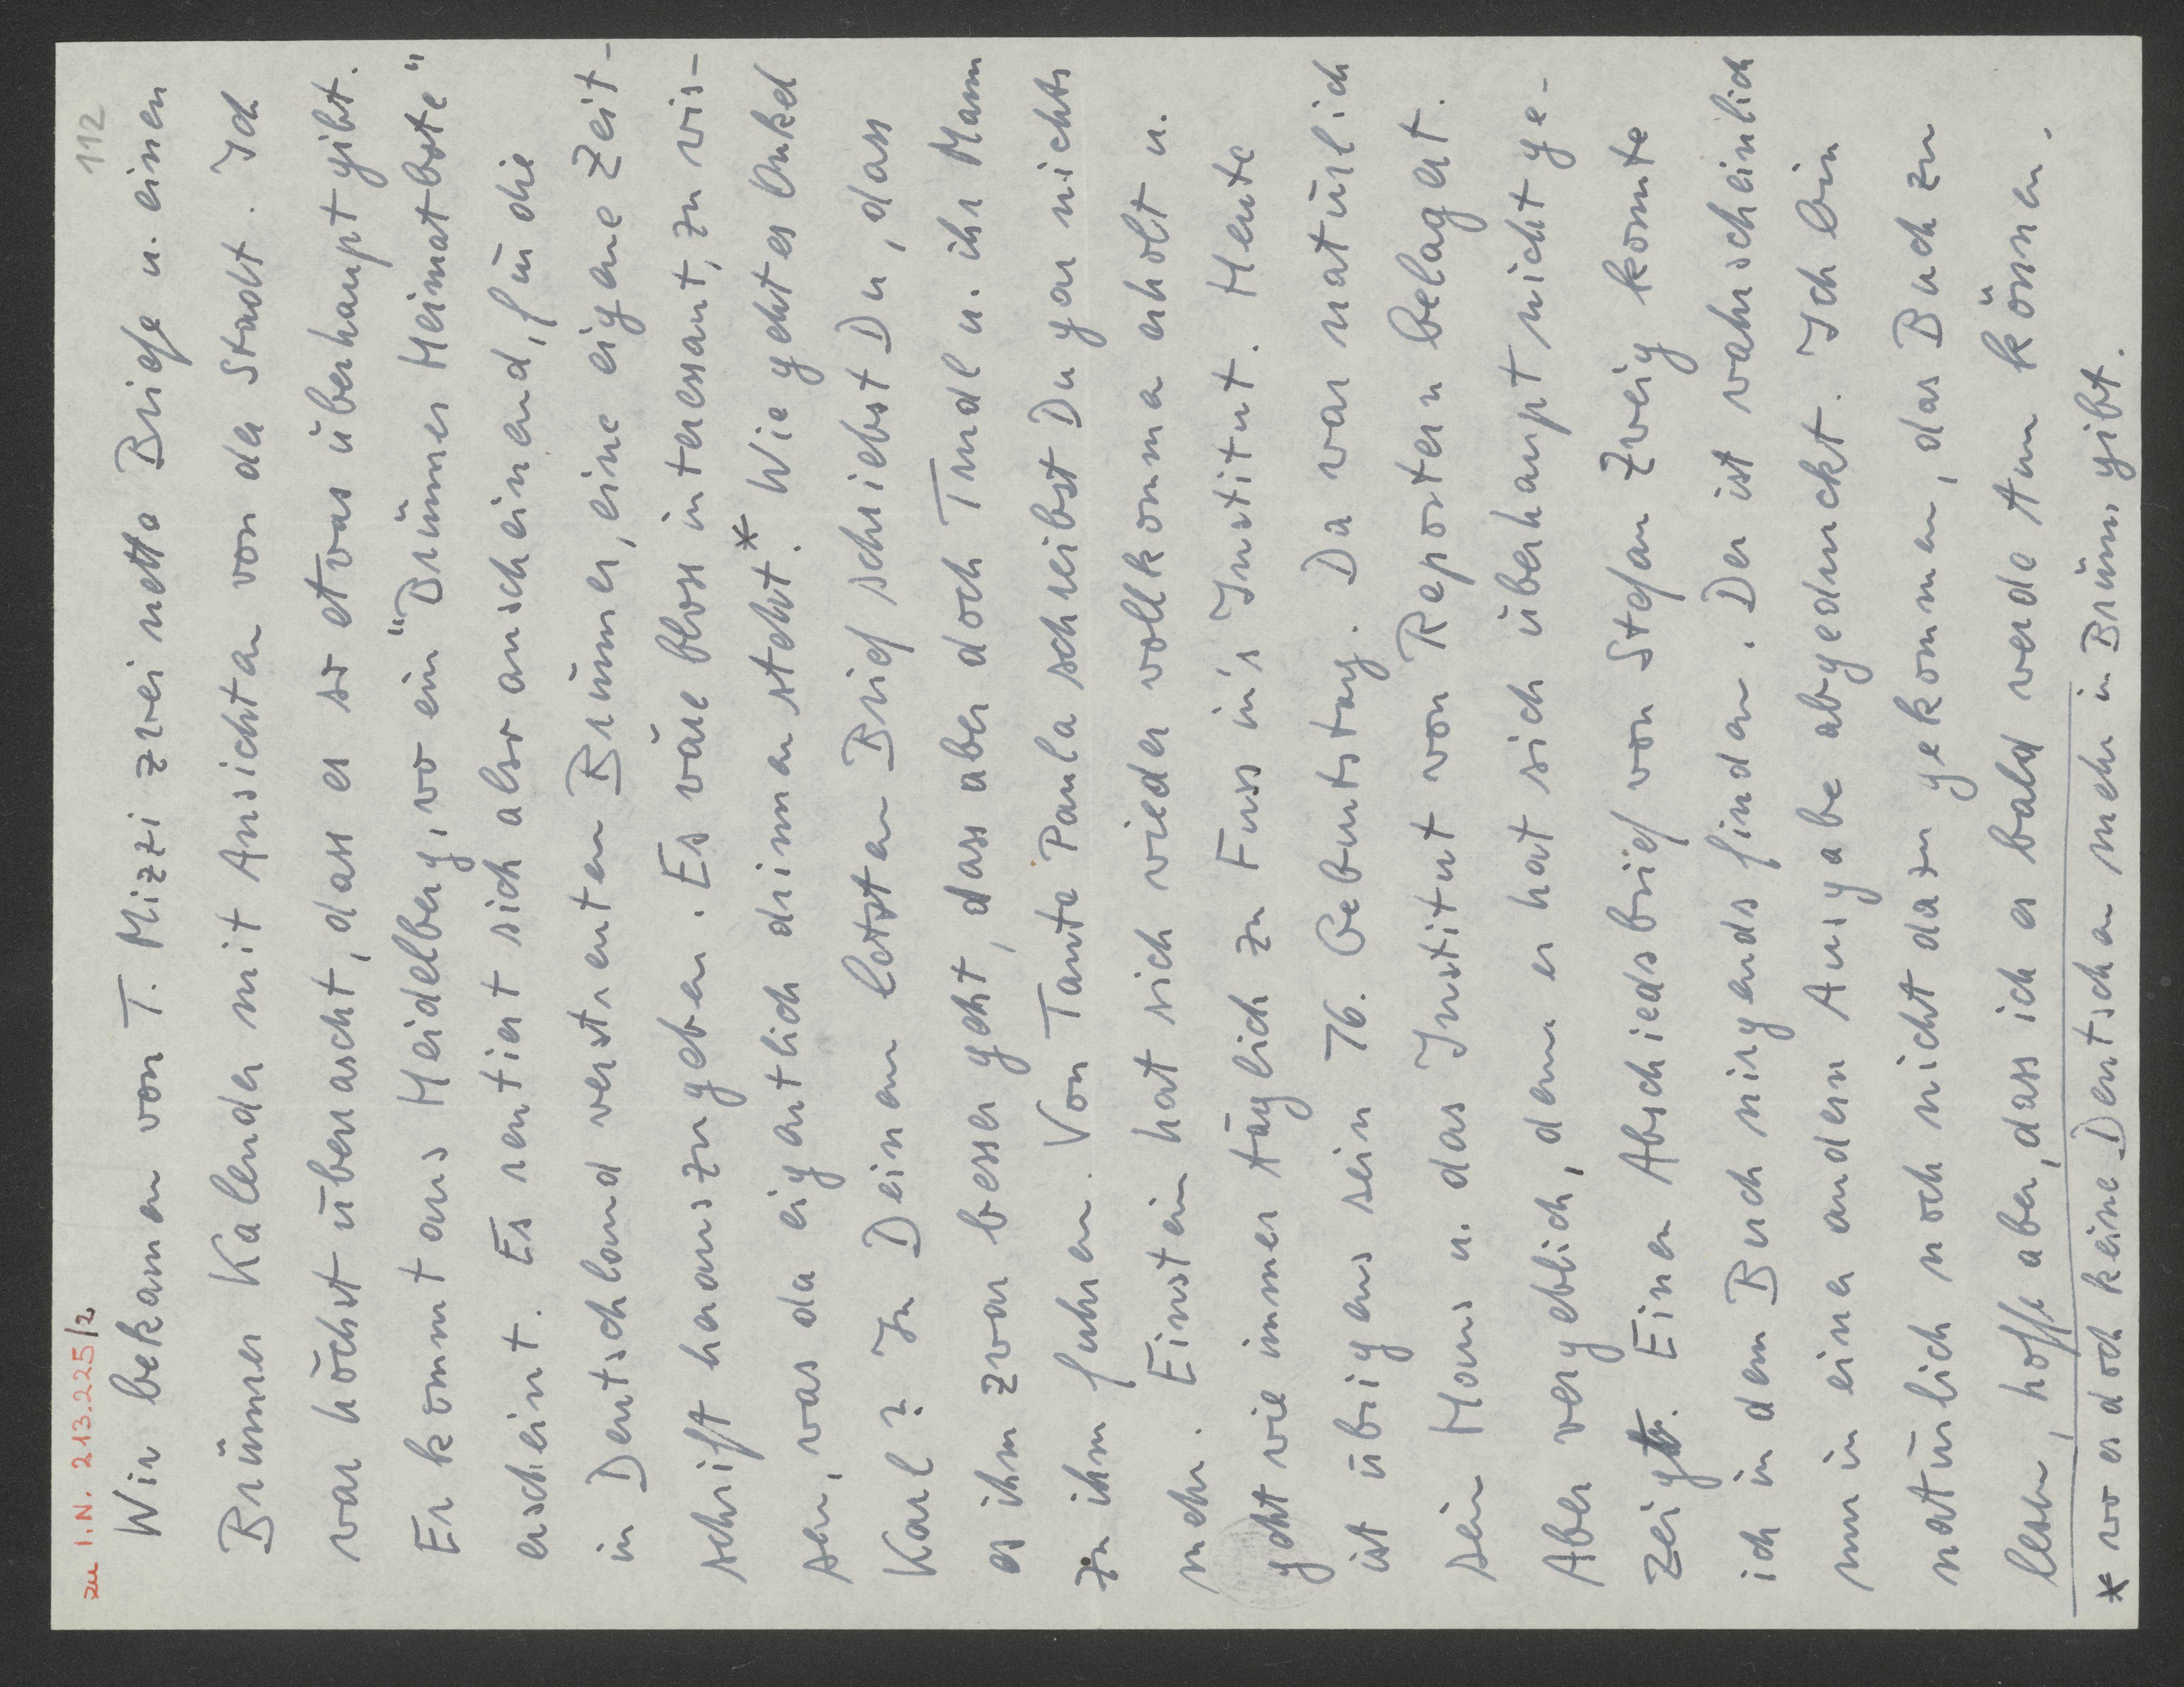 zu I.N. 213.225/2
112
Wir bekamen von T. Mizzi zwei nette Briefe u. einen
Brünner Kalender mit Ansichten von der Stadt. Ich
war höchst überrascht, dass es so etwas überhaupt gibt.
Er kommt aus Heidelberg, wo ein "Brünner Heimatbote"
erscheint. Es rentiert sich also anscheinend, für die
in Deutschland verstreuten Brünner, eine eigene Zeit-
schrift herauszugeben. Es wäre bloss interessant, zu wis-
sen, was da eigentlich drinnen steht.* Wie geht es Onkel
Karl? In Deinem letzten Brief schriebst Du, dass
es ihm zwar besser geht, dass aber doch Trudl u. ihr Mann
zu ihm fuhren. Von Tante Paula schreibst Du gar nichts
mehr. Einstein hat sich wieder vollkommen erholt u.
geht wie immer täglich zu Fuss in's Institut. Heute
ist übrigens sein 76. Geburtstag. Da war natürlich
sein Haus u. das Institut von Reportern belagert.
Aber vergeblich, denn er hat sich überhaupt nicht ge-
zeigt. Einen Abschiedsbrief von Stefan Zweig konnte
ich in dem Buch nirgends finden. Der ist wahrscheinlich
nur in einer andern Ausgabe abgedruckt. Ich bin
natürlich noch nicht dazu gekommen, das Buch zu
lesen, hoffe aber, dass ich es bald werde tun können.
* wo es doch keine Deutschen mehr in Brünn gibt.